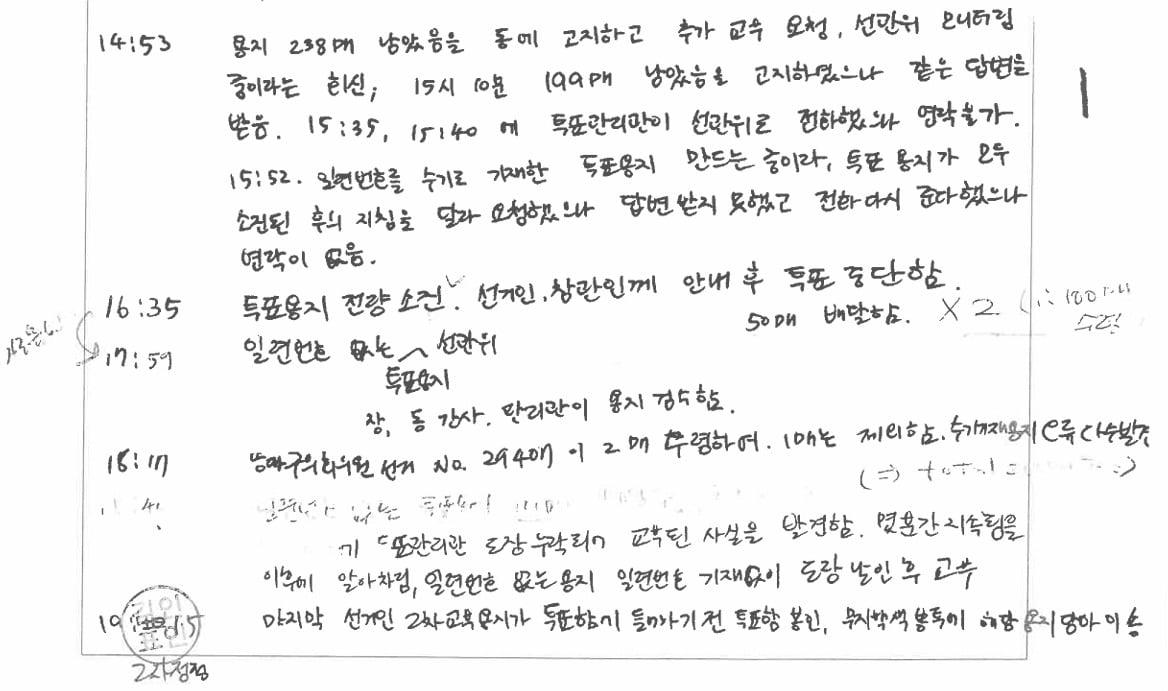 14:53 용지 238매 남았음을 동에 고지하고 추가 교부 요청, 선관위 모니터링
중이라는 회신; 15시 10분 199매 남았음을 고지하였으나 같은 답변을
받음. 15:35, 15:40 에 투표관리관이 선관위로 전화했으나 연락불가.
15:52. 일련번호를 수기로 기재한 투표용지 만드는 중이라, 투표 용지가 모두
소진된 후의 지침을 달라 요청했으나 답변 받지 못했고 전화 다시 준다했으나
연락이 없음.
16:35 투표용지 전량 소진. 선거인, 참관인께 안내 후 투표 중단함.
17:59 일련번호 없는 투표용지 선관위 50매 배달함. X2
동 간사. 관리관이 용지 검수함.
18:17 구의회의원 선거 No. 2940이 2매 수령하여. 1매는 제외함. 수기기재용지 오류 다수발견
total
투표관리관 도장 누락되어 교부된 사실을 발견함. 몇분간 지속됨을
이후에 알아차림, 일련번호 없는 용지 일련번호 기재없이 도장 날인 후 교부
마지막 선거인 2차교부용지가 투표함에 들어가기 전 투표함 봉인, 무지박색봉투에 해당 용지 담아 이송
2자정정